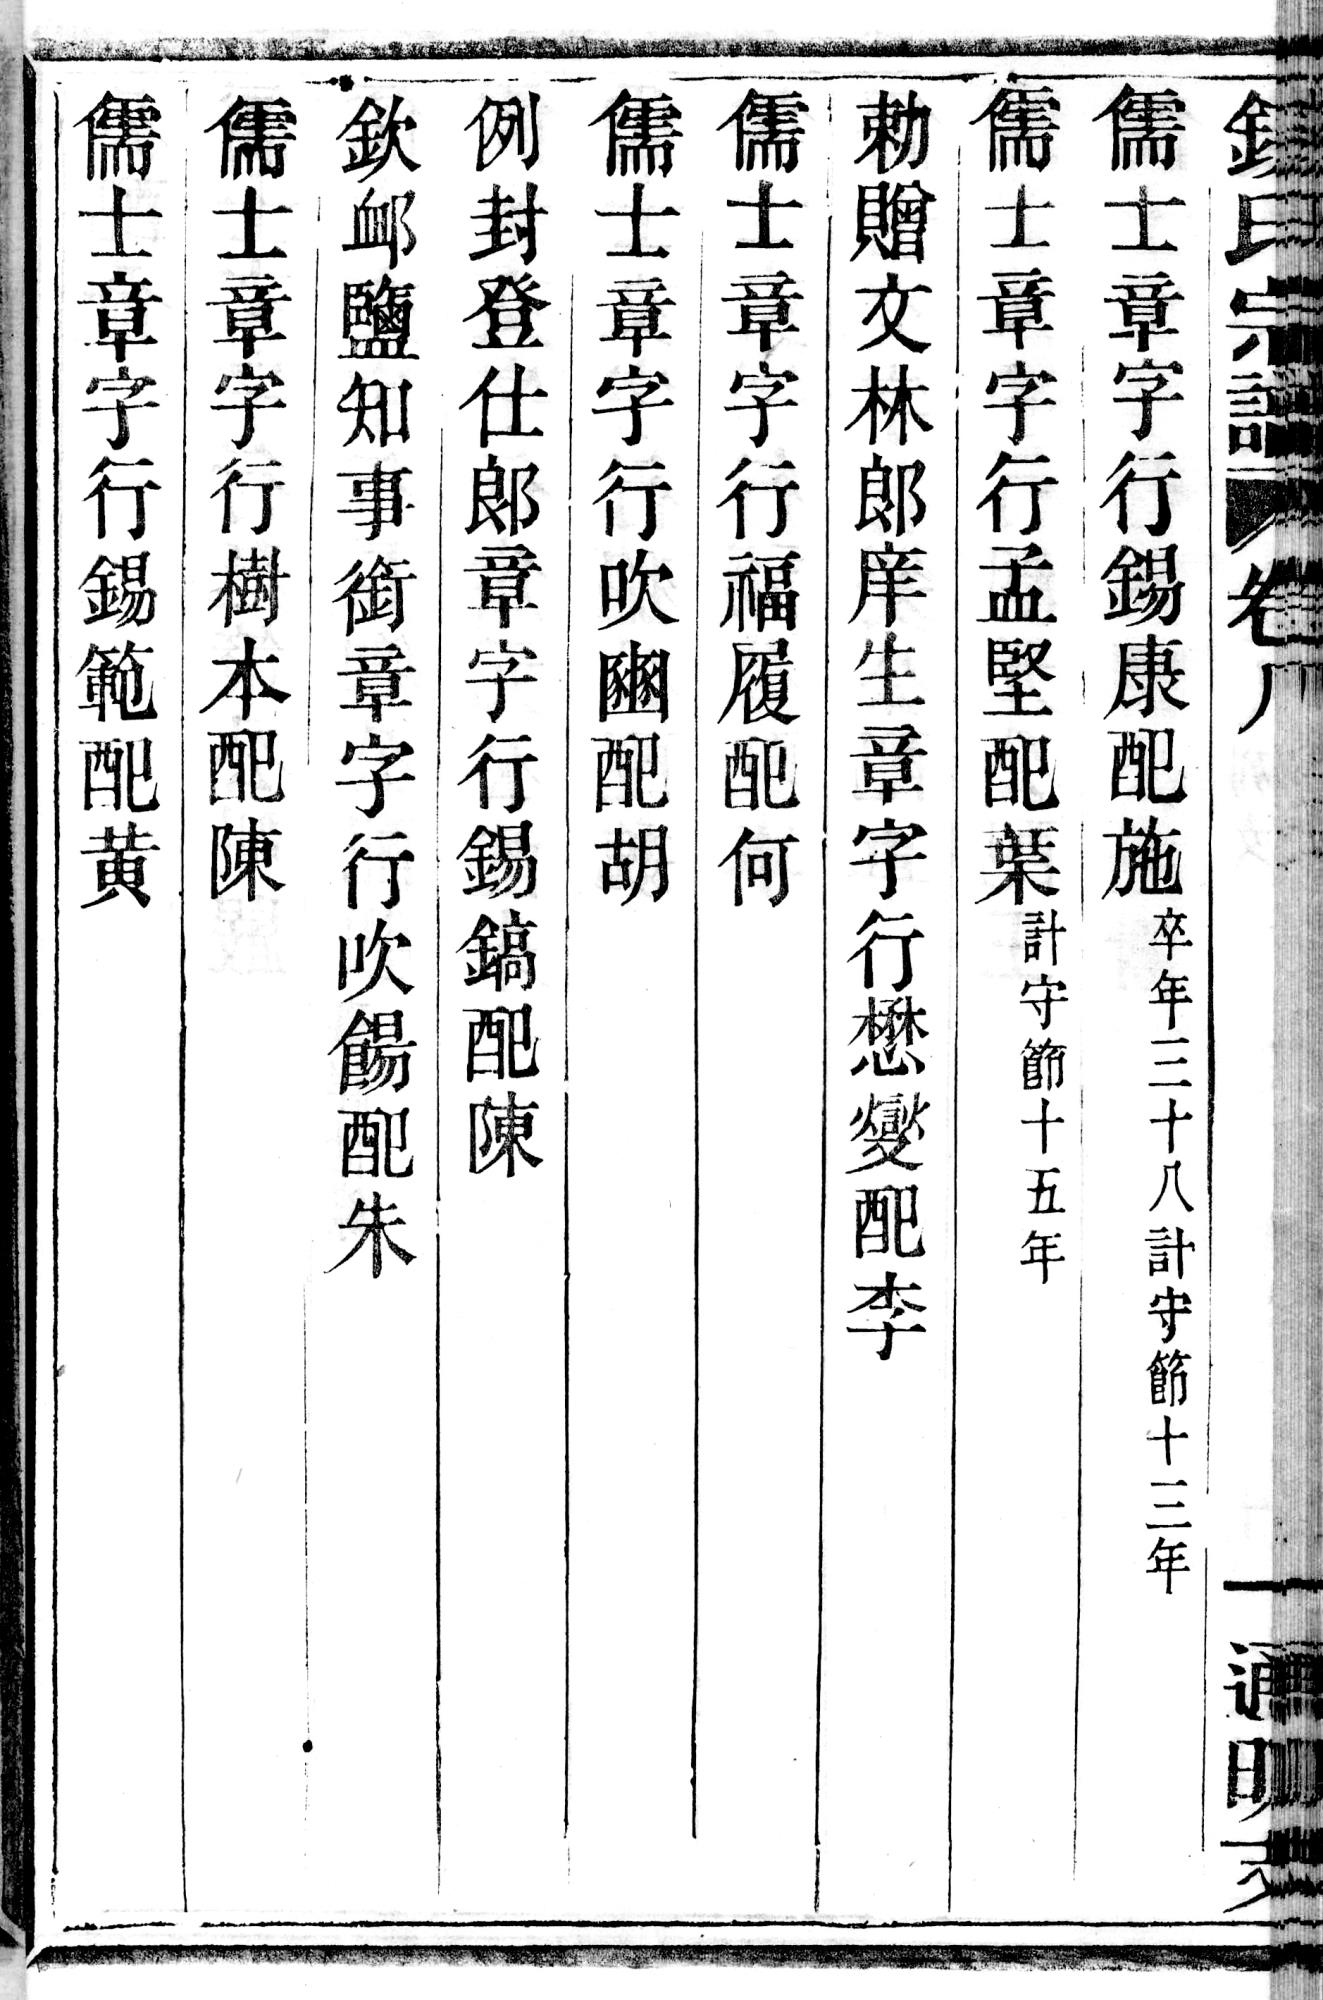 氏宗譜 卷八 一 通明支
儒士章字行錫康配施 卒年三十八計守節十三年
儒士章字行孟堅配葉 計守節十五年
勅贈文林郎庠生章字行懋燮配李
儒士章字行福履配何
儒士章字行吹豳配胡
例封登仕郎章字行錫鎬配陳
欽卹鹽知事銜章字行吹餳配朱
儒士章字行樹本配陳
儒士章字行錫範配黃